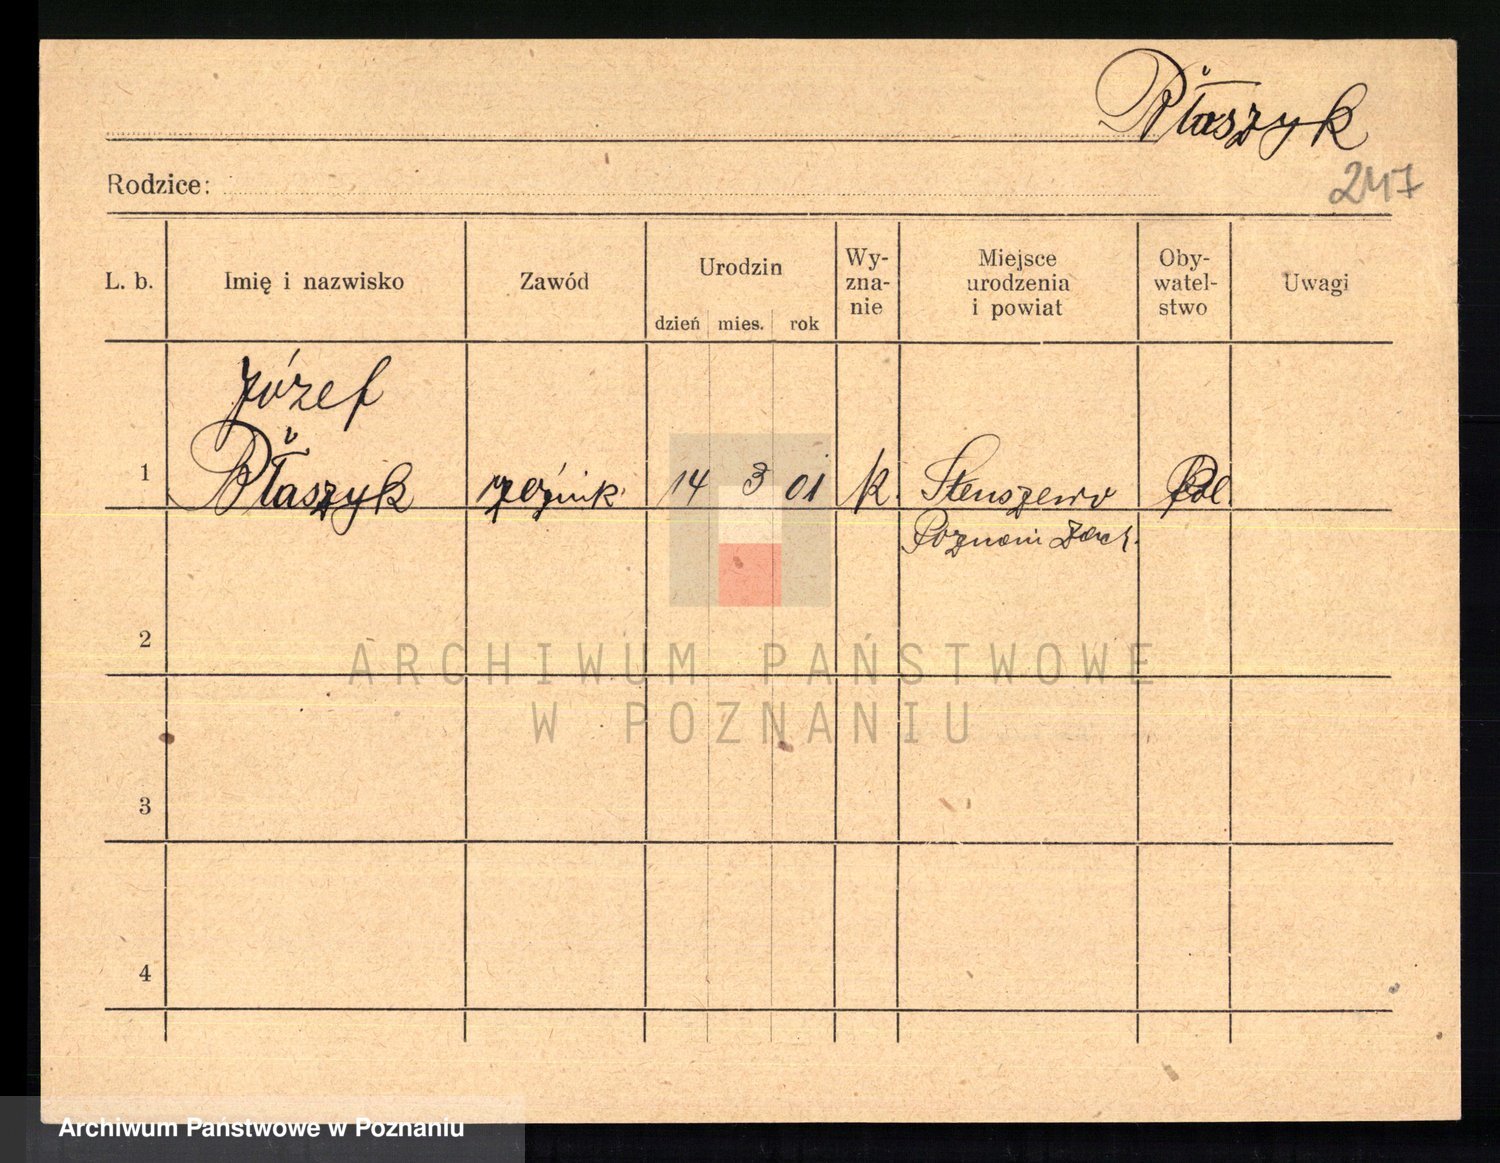 Błaszyk
Rodzice:
247
L. b. Imię i nazwisko Zawód Urodzin dzień mies. rok Wy-zna-nie Miejsce urodzenia i powiat Oby-watel-stwo Uwagi
Józef
1 Błaszyk rzeźnik 14 3 01 k. Stenszewo Pol
Poznań Zach.
2
ARCHIWUM PAŃSTWOWE
W POZNANIU
3
4
Archiwum Państwowe w Poznaniu